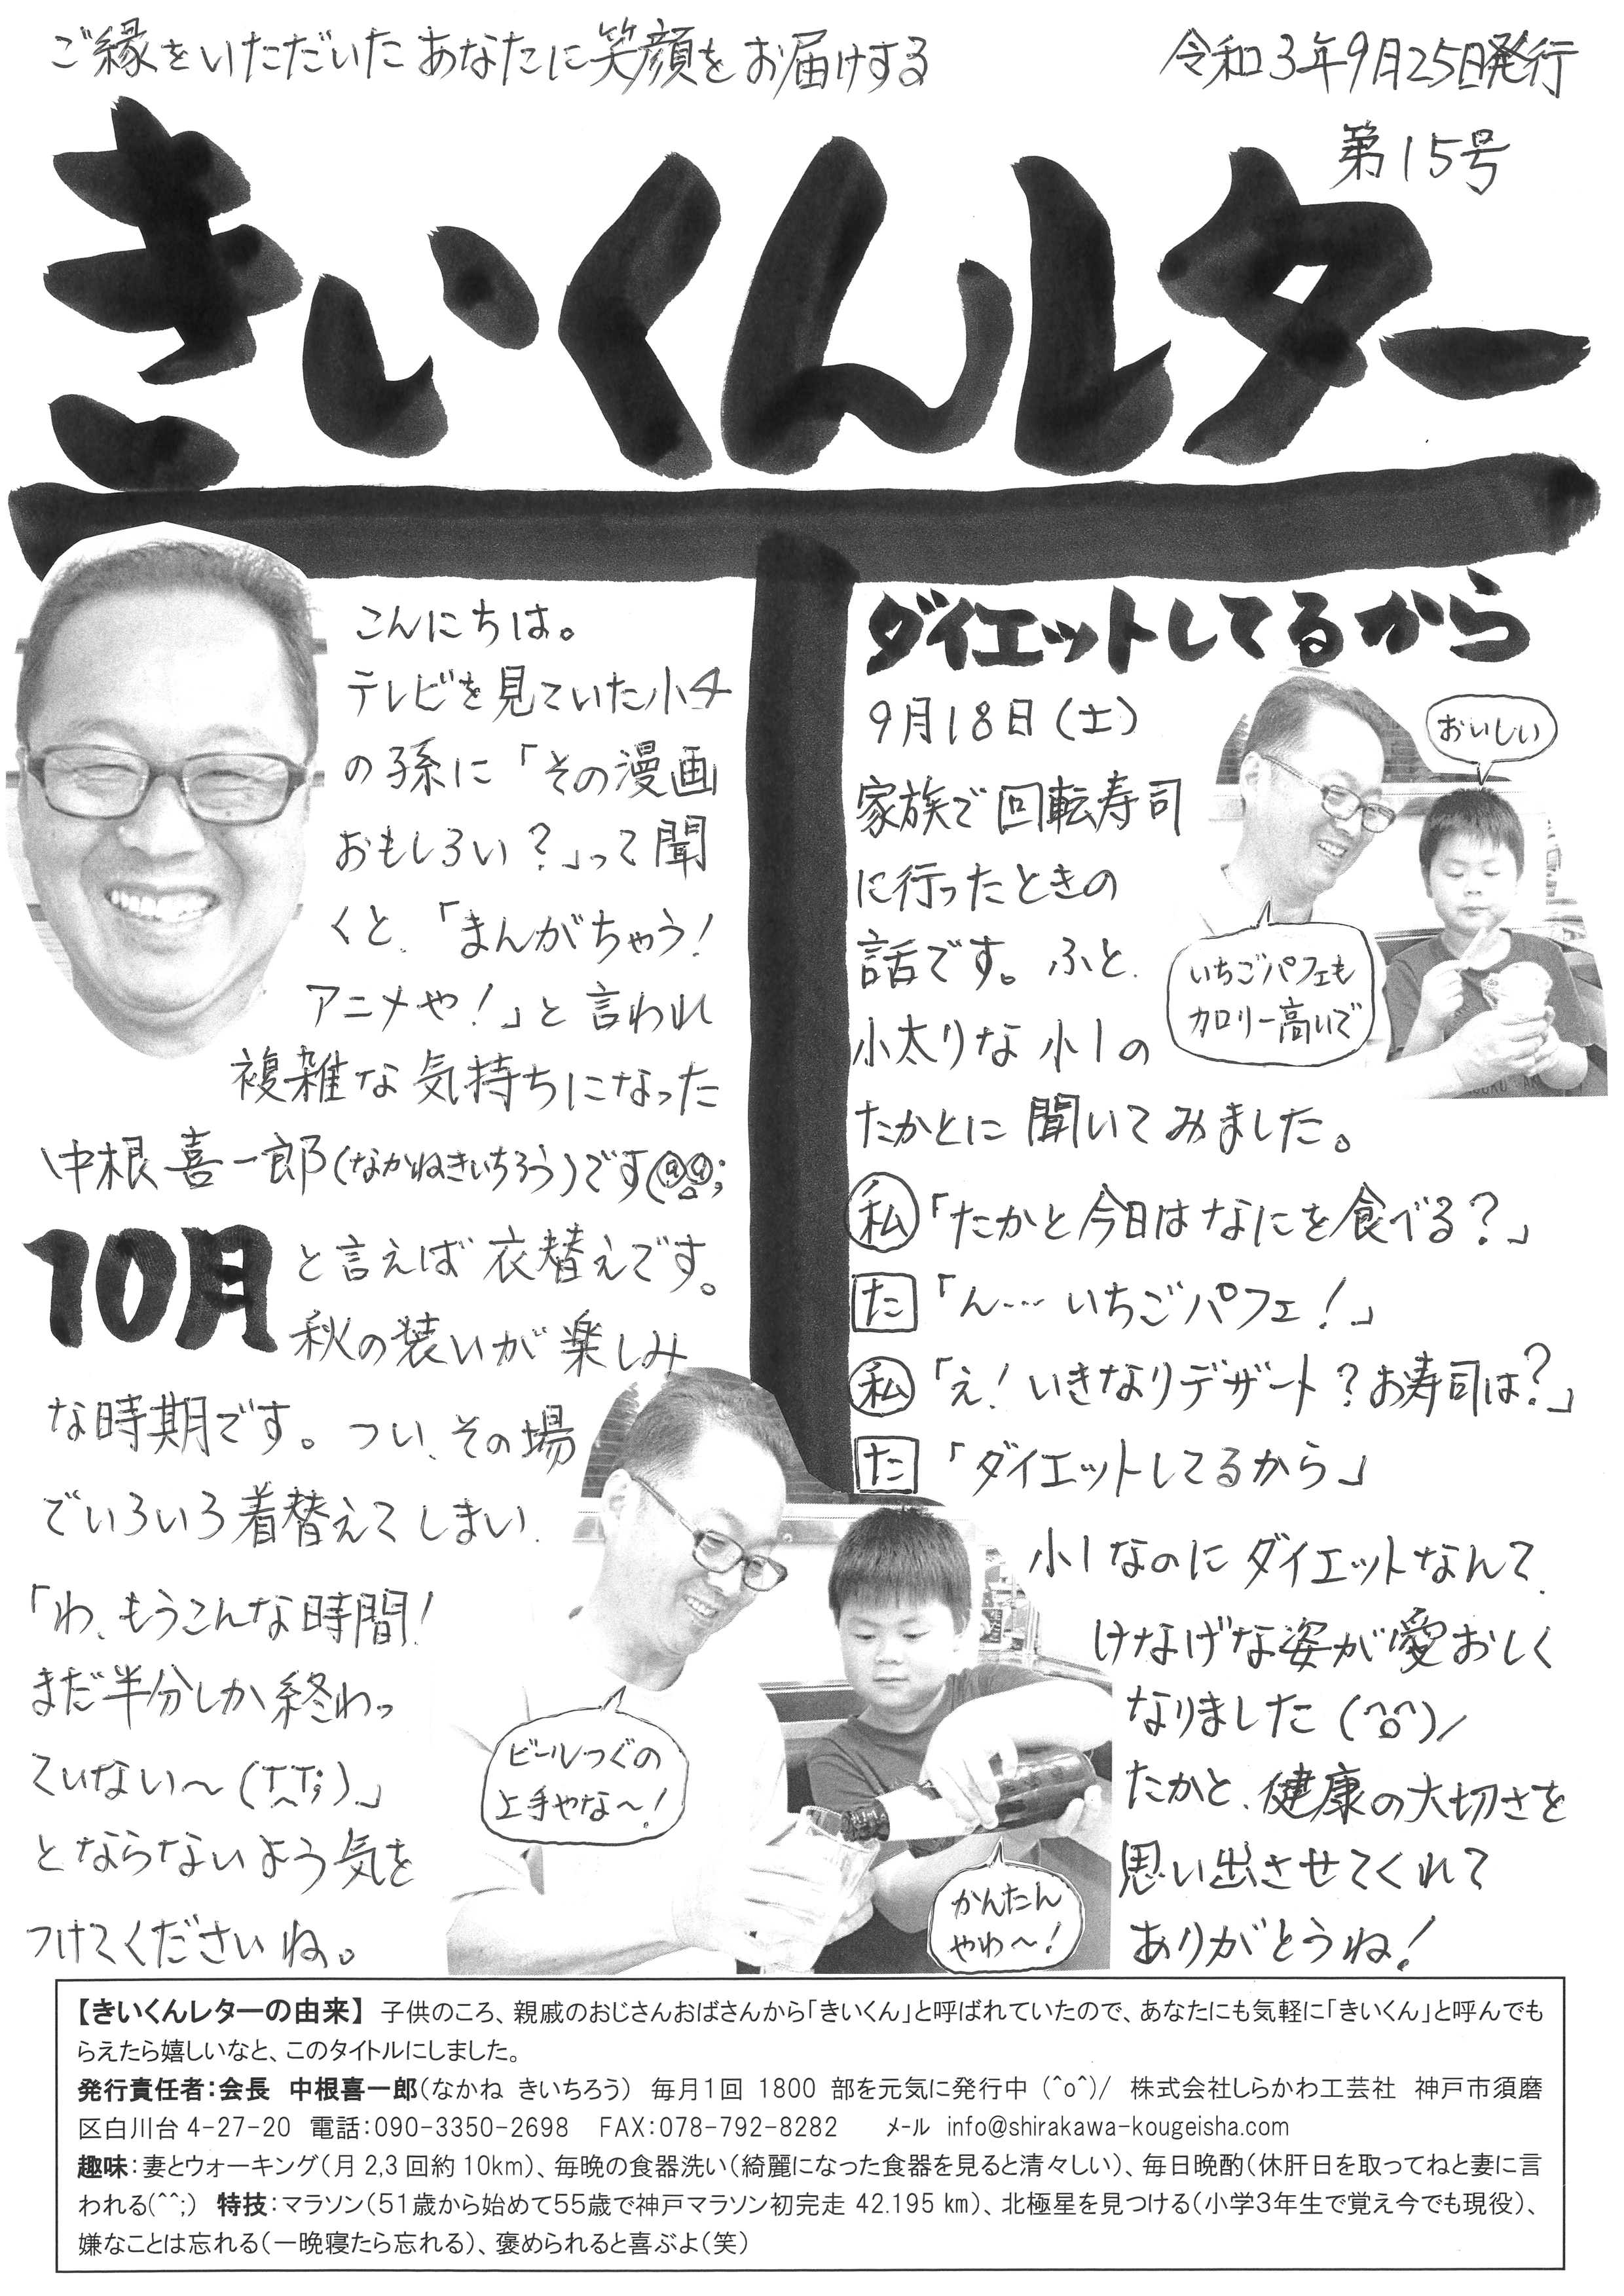 ご縁をいただいたあなたに笑顔をお届けする
令和3年9月25日発行
第15号
きいくんレター
こんにちは。
テレビを見ていた小4
の孫に「その漫画
おもしろい?」って聞
くと、「まんがちゃう!
アニメや!」と言われ
複雑な気持ちになった
中根喜一郎(なかねきいちろう)です
10月と言えば衣替えです。
秋の装いが楽しみ
な時期です。つい、その場
でいろいろ着替えてしまい、
「わ、もうこんな時間!
まだ半分しか終わっ
ていない〜(T_T;)」
とならないよう気を
つけてくださいね。
ビールつぐの
上手やな〜!
かんたん
やわ〜!
ダイエットしてるから
9月18日(土)
家族で回転寿司
に行ったときの
話です。ふと、
小太りな小1の
たかとに聞いてみました。
おいしい
いちごパフェも
カロリー高いで
私「たかと今日はなにを食べる?」
た「ん…いちごパフェ!」
私「え!いきなりデザート?お寿司は?」
た「ダイエットしてるから」
小1なのにダイエットなんて、
けなげな姿が愛おしく
なりました(^o^)/
たかと、健康の大切さを
思い出させてくれて
ありがとうね!
【きいくんレターの由来】 子供のころ、親戚のおじさんおばさんから「きいくん」と呼ばれていたので、あなたにも気軽に「きいくん」と呼んでも
らえたら嬉しいなと、このタイトルにしました。
発行責任者:会長 中根喜一郎(なかね きいちろう) 毎月1回 1800 部を元気に発行中 (^o^)/ 株式会社しらかわ工芸社 神戸市須磨
区白川台 4-27-20 電話:090-3350-2698 FAX:078-792-8282 メール info@shirakawa-kougeisha.com
趣味:妻とウォーキング(月 2,3 回約 10km)、毎晩の食器洗い(綺麗になった食器を見ると清々しい)、毎日晩酌(休肝日を取ってねと妻に言
われる(^^;) 特技:マラソン(51歳から始めて55歳で神戸マラソン初完走 42.195 km)、北極星を見つける(小学3年生で覚え今でも現役)、
嫌なことは忘れる(一晩寝たら忘れる)、褒められると喜ぶよ(笑)